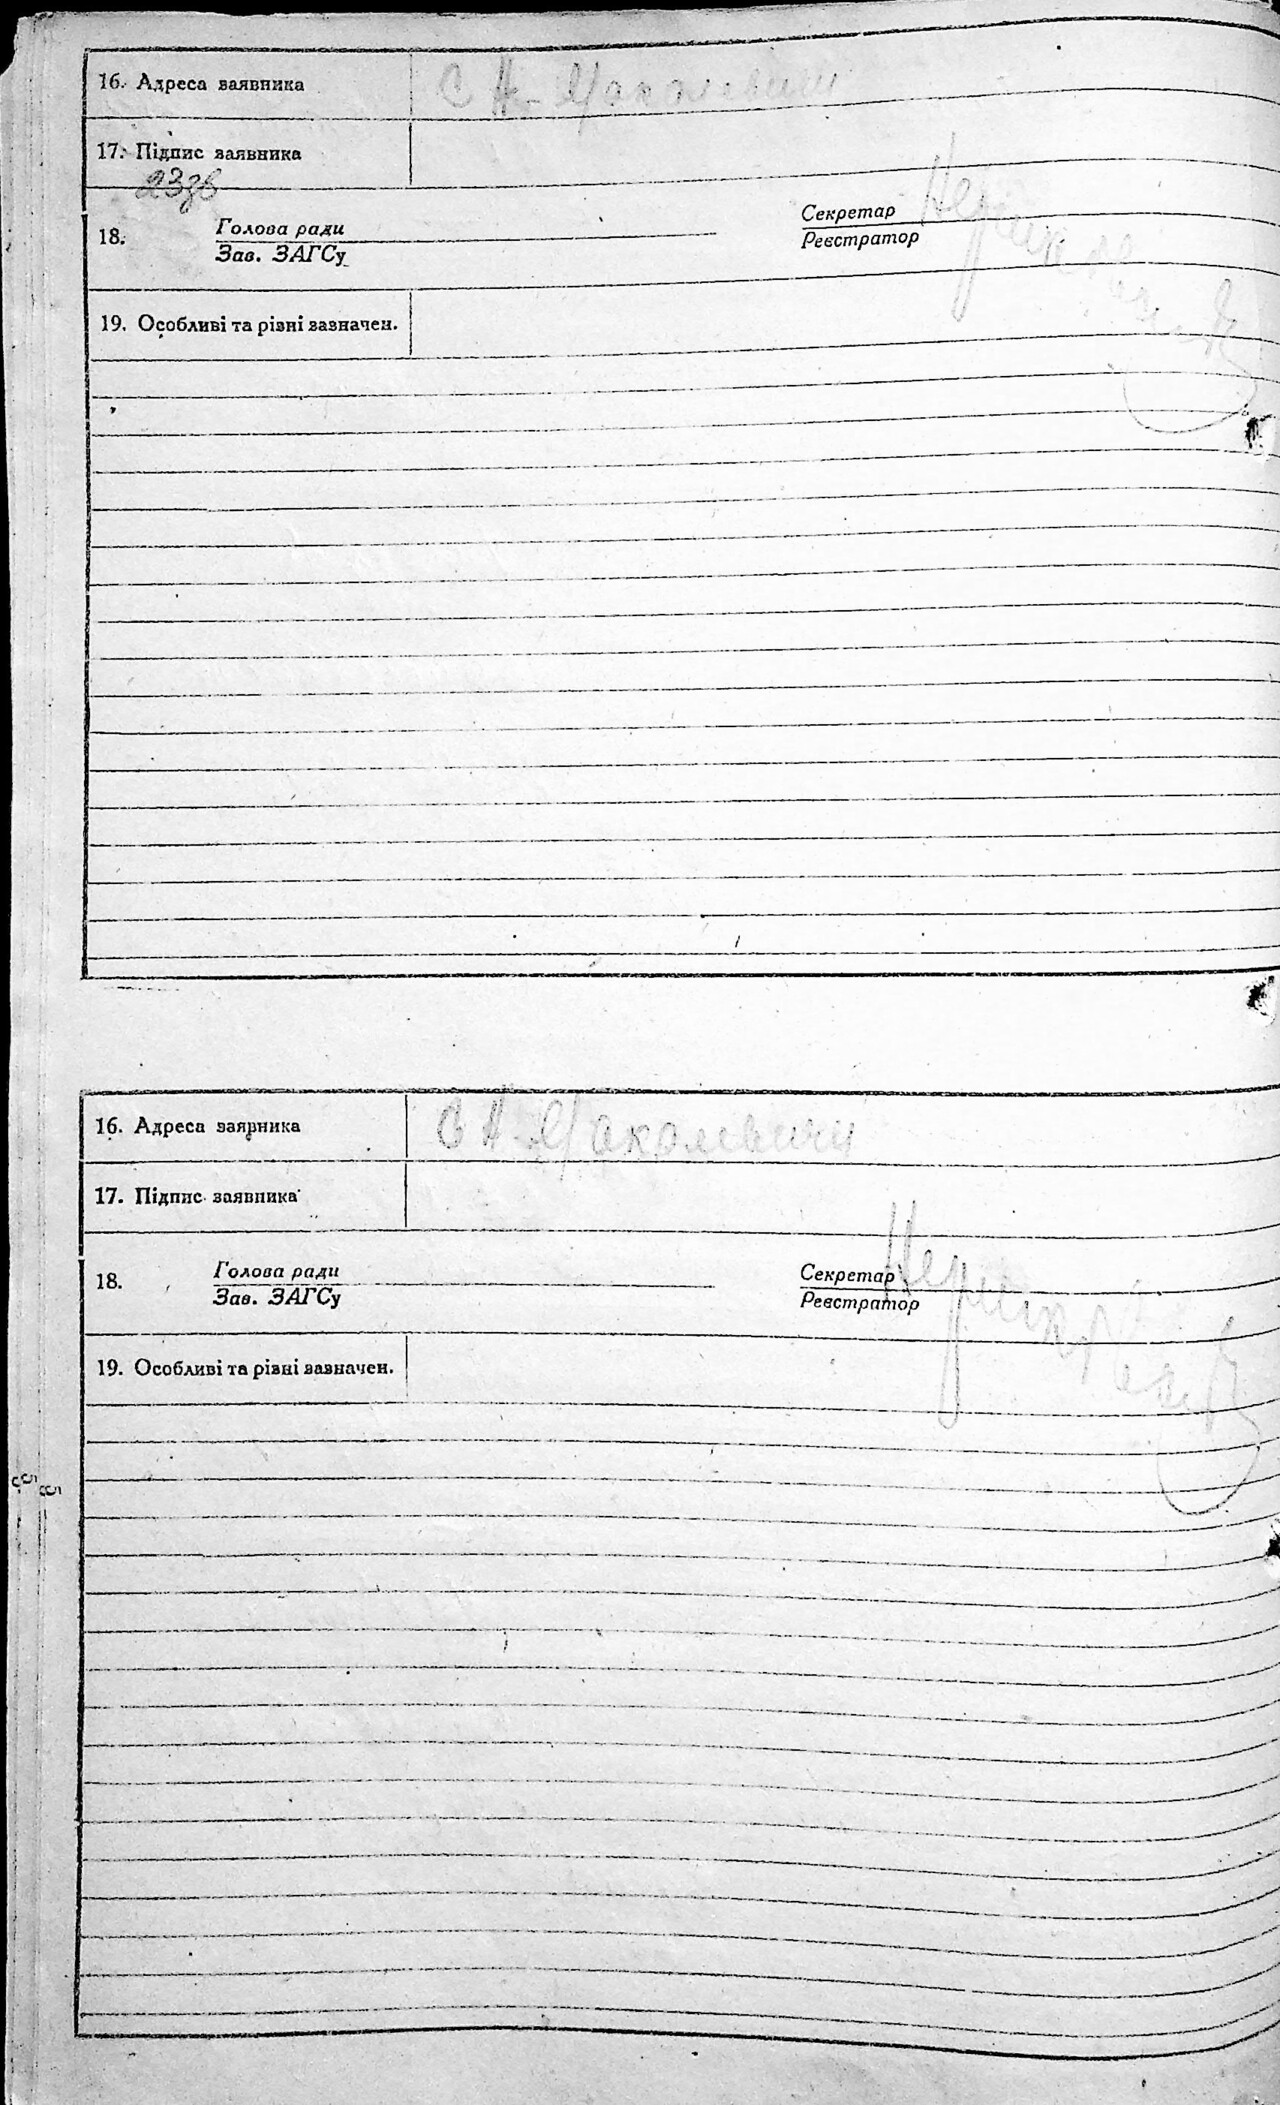 16. Адреса заявника С Н-Яколевичи
17. Підпис заявника
23зв
18. Голова ради Секретар
Зав. ЗАГСу Реєстратор
19. Особливі та різні зазначен.
16. Адреса заявника С Н-Яколевичи
17. Підпис заявника
18. Голова ради Секретар
Зав. ЗАГСу Реєстратор
19. Особливі та різні зазначен.